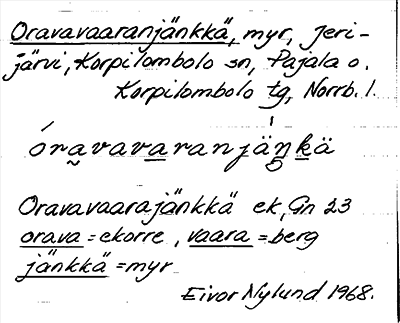 Oravavaaranjänkkä, myr, Jeri-
järvi, Korpilombolo sn, Pajala o.
Korpilombolo tg, Norrb. l.
óravavaranjäŋkä
Oravavaarajänkkä ek, Gn 23
orava = ekorre, vaara = berg
jänkkä = myr
Eivor Nylund 1968.